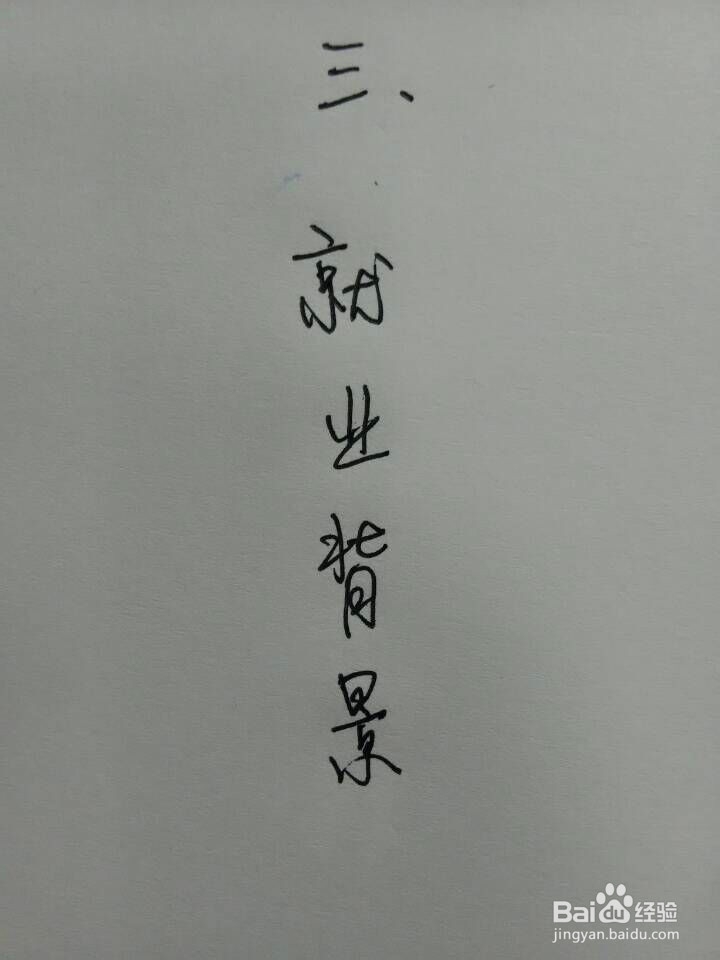 三、
就业背景
Baidu经验
jingyan.baidu.com